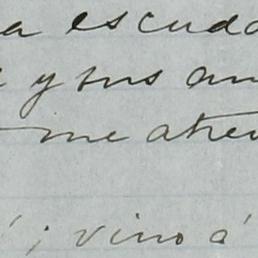 a escuda
y sus am
me atrev
; vino á